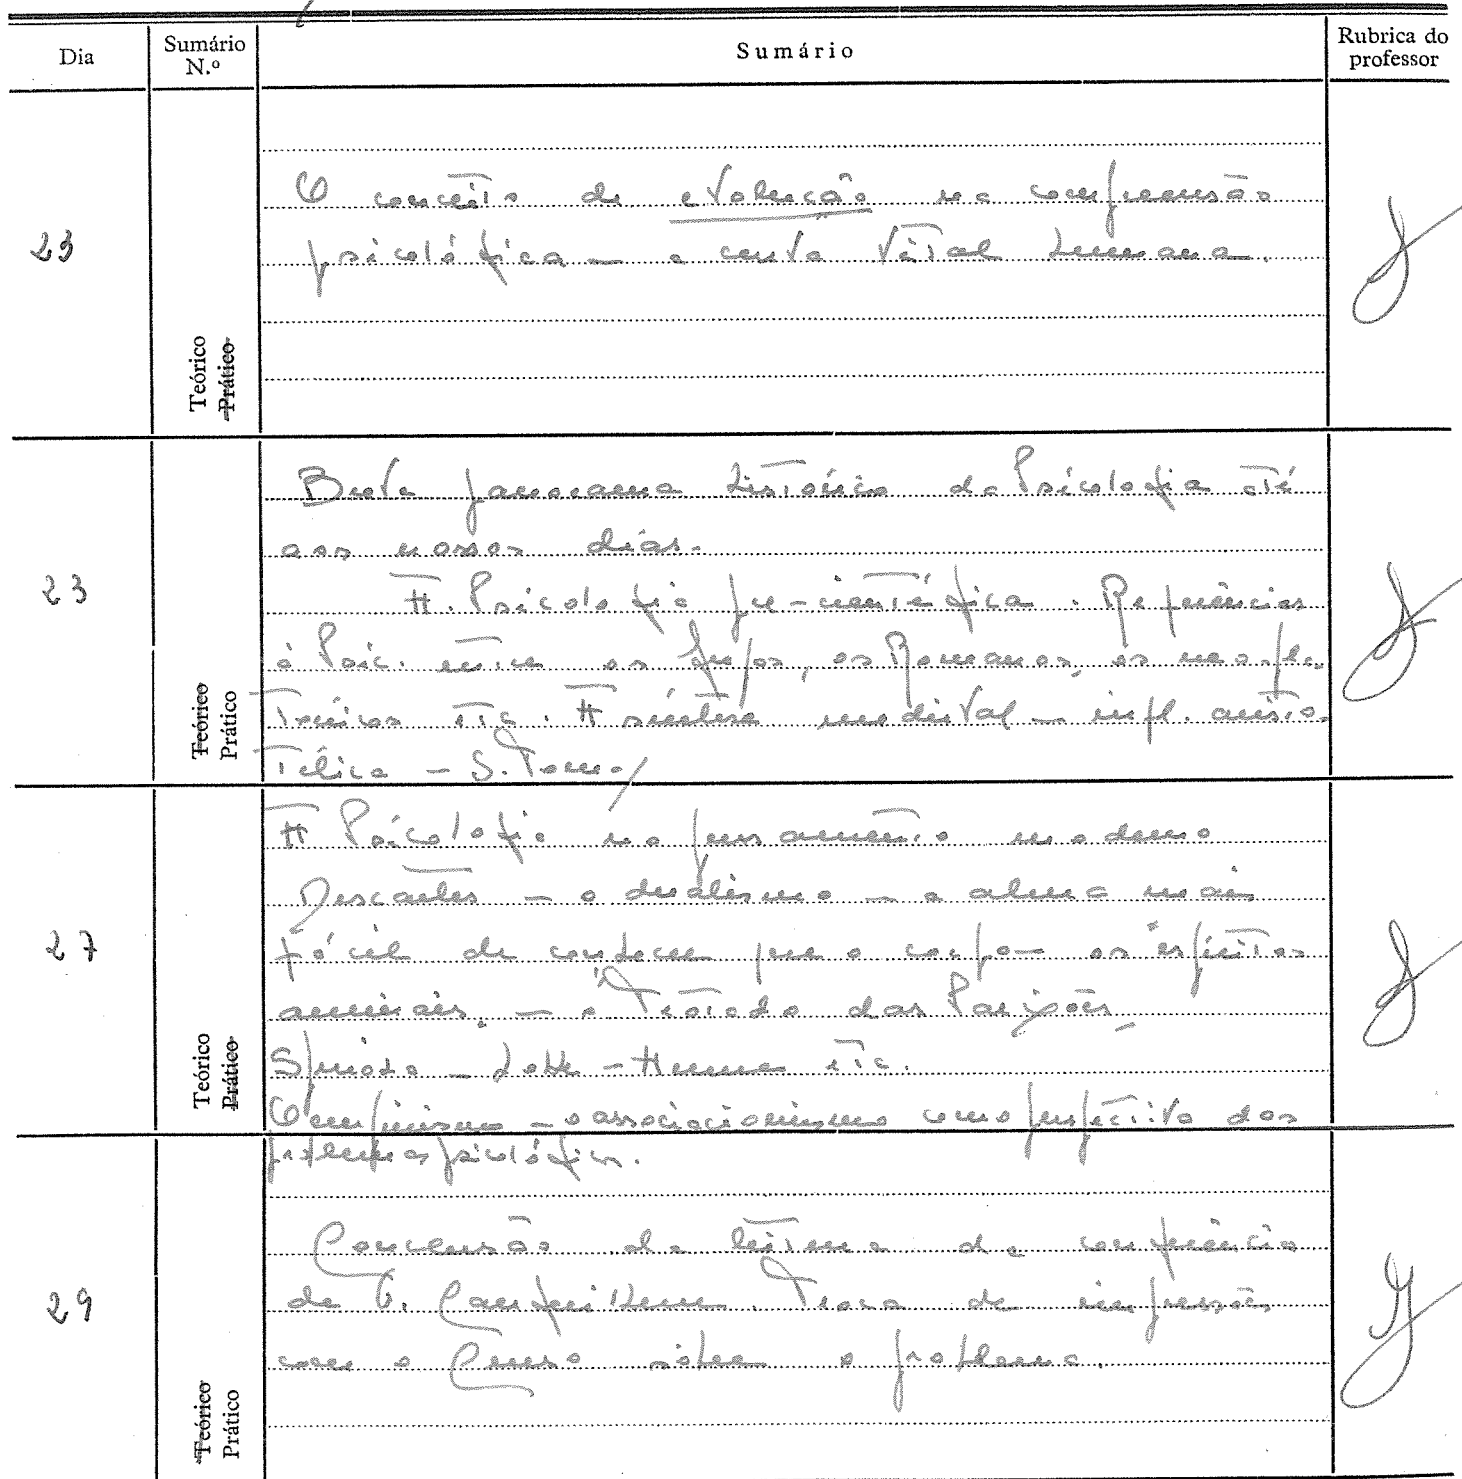 Dia Sumário N.º Sumário Rubrica do professor
23
Teórico Prático
O conceito de evolução na compreensão
psicológica — a curva vital humana.
23
Teórico Prático
Breve panorama histórico da Psicologia até
aos nossos dias.
A Psicologia pre-científica. Referências
à Psic. entre os gregos, os Romanos, os neo-pla-
tónicos etc. A síntese medieval — infl. aristo-
télica — S. Tomás
27
Teórico Prático
A Psicologia no pensamento moderno
Descartes — o dualismo — a alma mais
fácil de conhecer que o corpo — os "espíritos
animais" — o Tratado das Paixões
Spinoza — Locke — Hume etc.
O empirismo — o associacionismo como perspectiva dos
problemas psicológicos.
29
Teórico Prático
Conclusão da leitura da conferência
de G. Canguilhem. Troca de impressões
com o Curso sobre o problema.